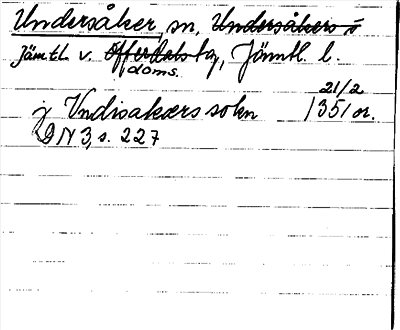 Undersåker, sn, Undersåkers o
Jämtl. v. Offerdals tg, Jämtl. l.
doms.
21/2
Vndisakærs sokn 1351 or.
DN 3, s. 227